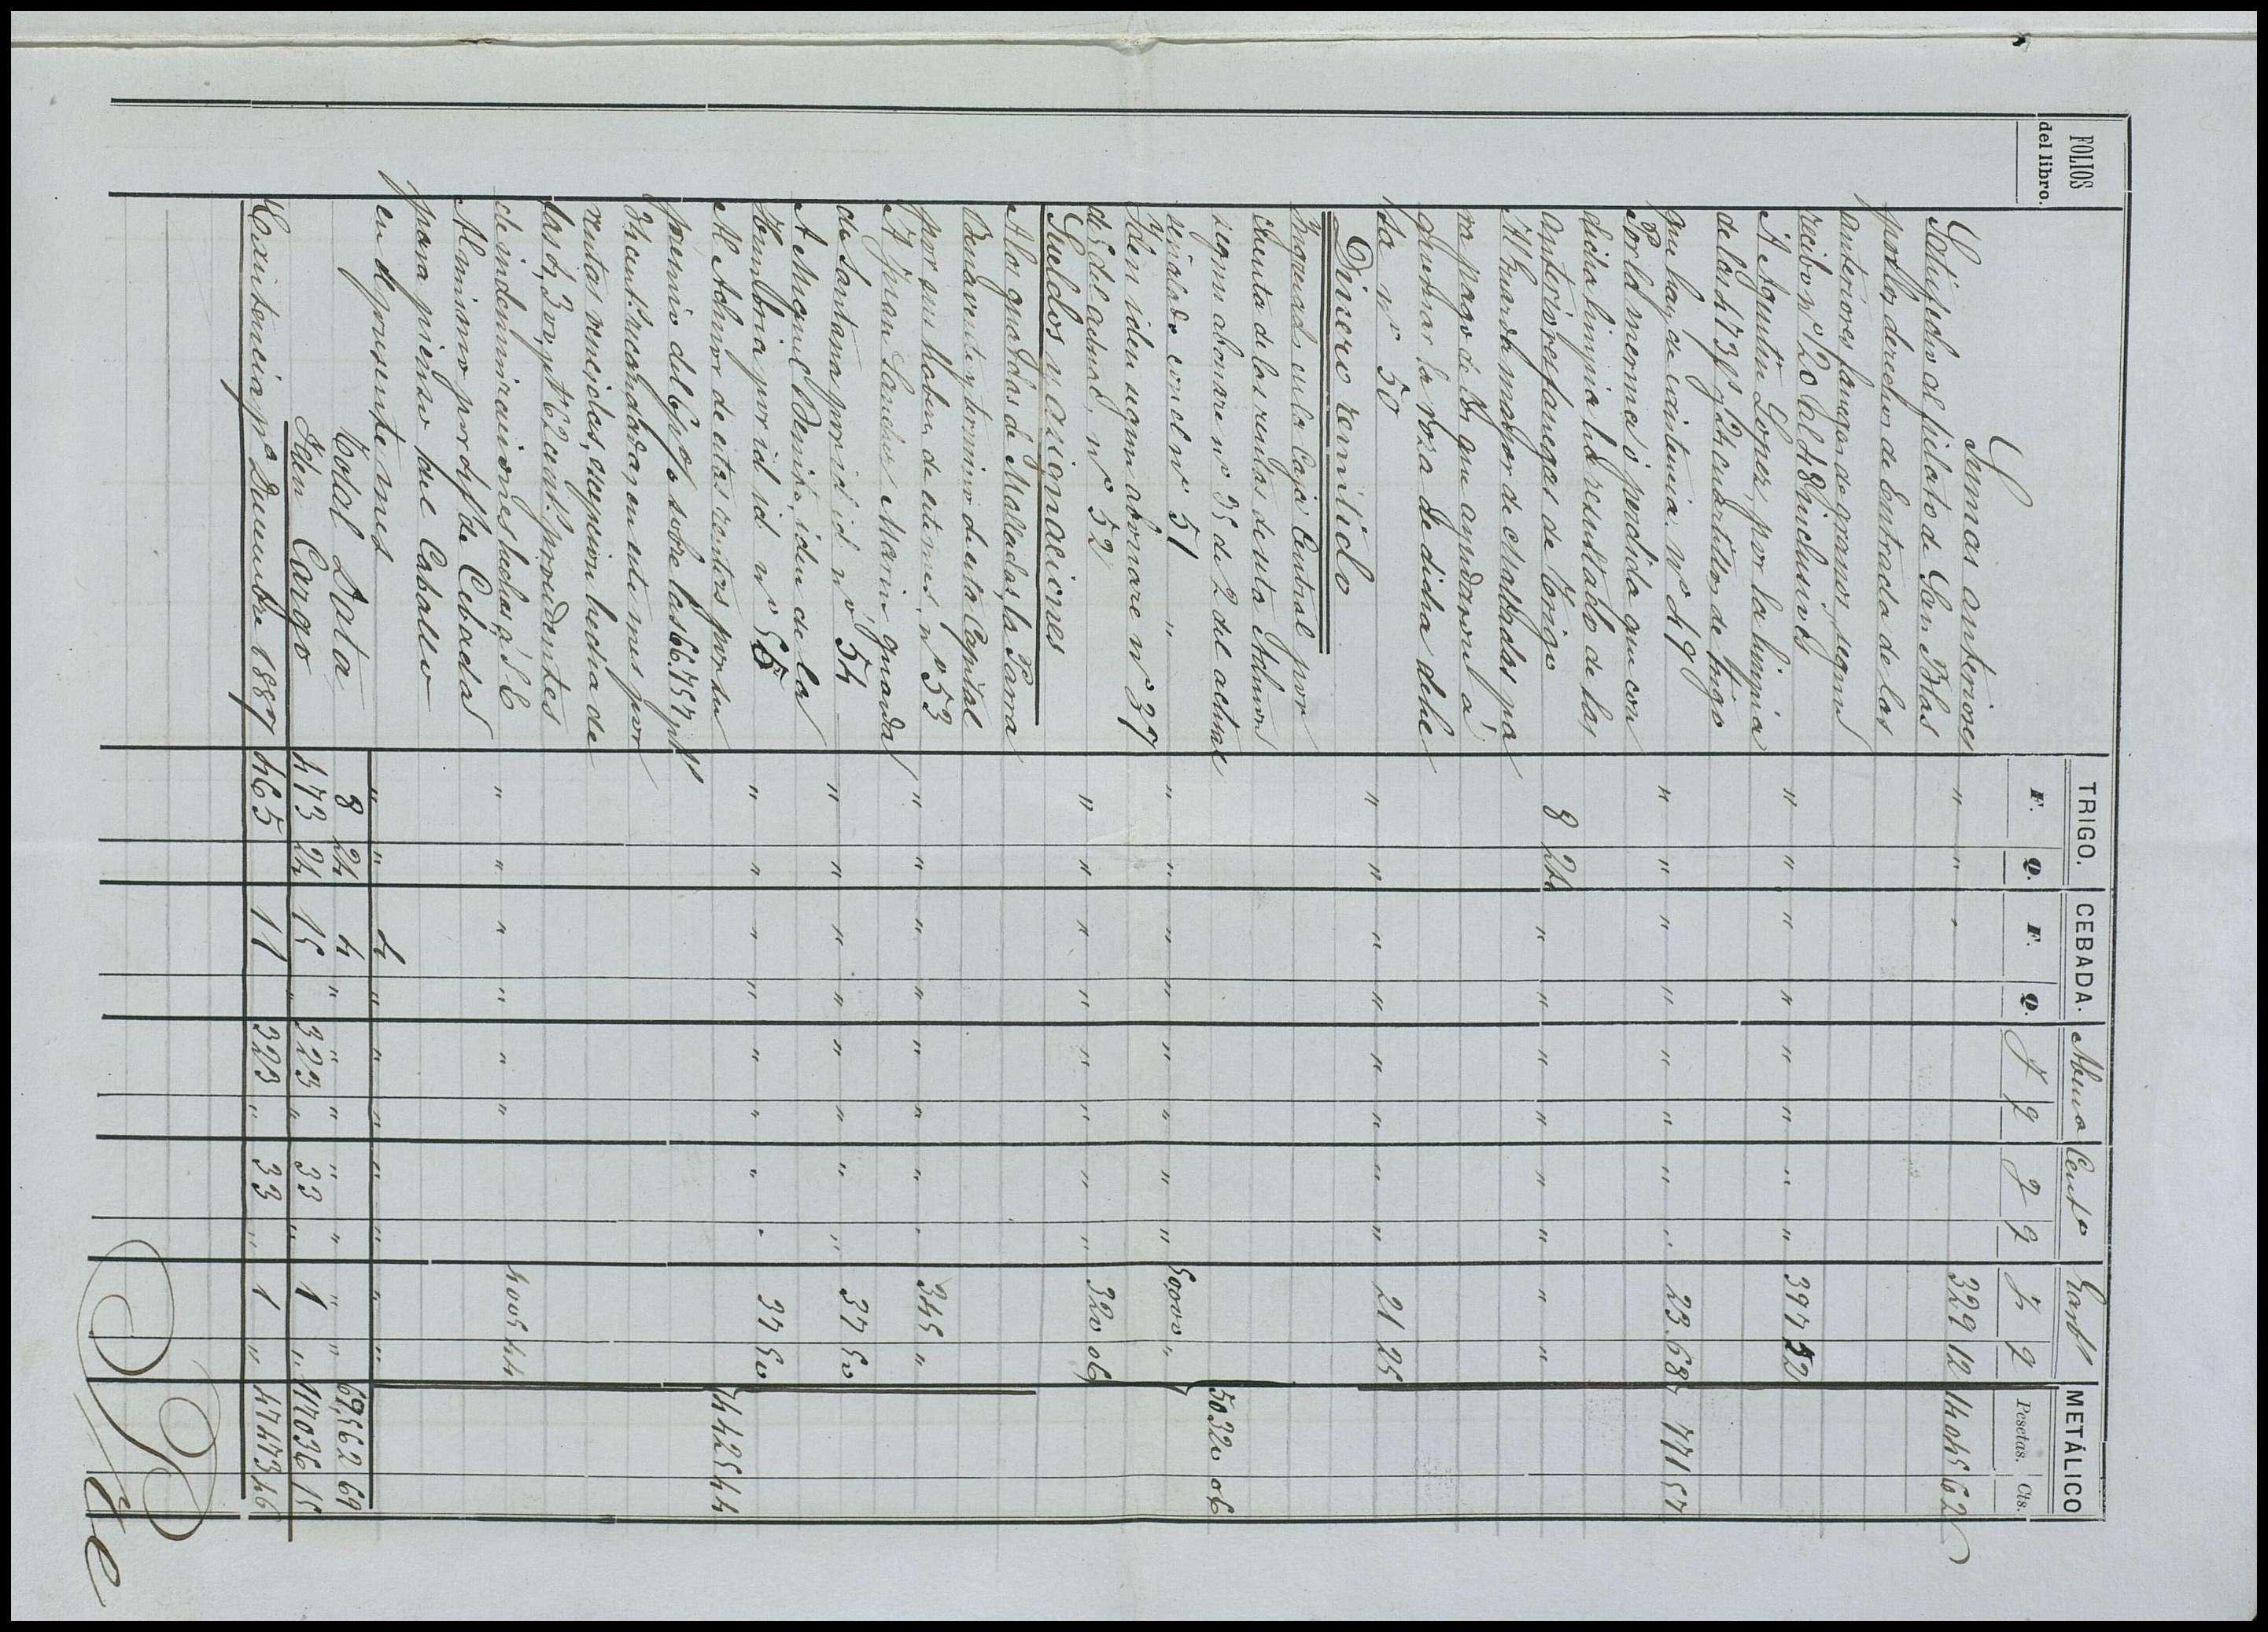 FOLIOS del libro. TRIGO. CEBADA. Abena Cent.o Garb.s METÁLICO
F. Q. F. Q. F Q F Q F Q Pesetas. Cts.
Sumas anteriores " " " 329 12 14045 62
Satisfecho al fielato de San Blas
por los derechos de Entrada de las
anteriores fanegas de granos, segun
recibos nº 120 al 48 inclusives " " " " " " " " 397 52
A Agustin Lopez, por la limpia
de las 473 fs y 24 cuartillos de trigo
que hay de existencia. nº 49 " " " " " " " " 23.68 771 57
Por la merma ó perdida que con
dicha limpia ha resultado de las
anteriores fanegas de Torigo 8 24 " " " " " " " "
Al Guarda mayor de Malladas pa
ra pago de los que ayudaron á
quemar la roza de dicha dehe
sa nº 50 " " " " " " " " 21 25
Dinero remitido
Ingresado en la Caja Central por
cuenta de las rentas de esta Admon
segun abonare nº 35 de 2 del actual
señalado con el nº 51 " " " " " " " " 50000 "
Iden iden segun abonare nº 37 50320 06
de 5 del actual, nº 52 " " " " " " " " 320 06
Sueldos y asignaciones
A los guardas de Malladas, la Parra
Benavente y termino de esta Capital
por sus haberes de este mes, nº 53 " " " " " " " " 345 "
A Juan Sanchez Marin, guarda
de Santana por id id nº 54 " " " " " " " " 37 50
A Miguel Benito, iden de la
Zombria por id id nº 55 " " " " " " " " 37 50
Al Admor de estas rentas por su 4425 44
premio del 6 p% sobre las 66.757 pts
34 cents. recaudadas en este mes por
rentas vencidas, excepcion hecha de
las pts procedentes
de indemnizaciones hechas á S. E. " " " " " " " " 4005 44
Al mismo por 4 fs de Cebada
para pienso del Caballo
en el presente mes " " 4 " " " " " " "
Total Data 8 24 4 " " " " " " " 69.562 69
Iden Cargo 473 24 15 " 323 " 33 " 1 " 117036 15
Existencia pª Diciembre 1887 465 11 323 " 33 " 1 " 47473 46